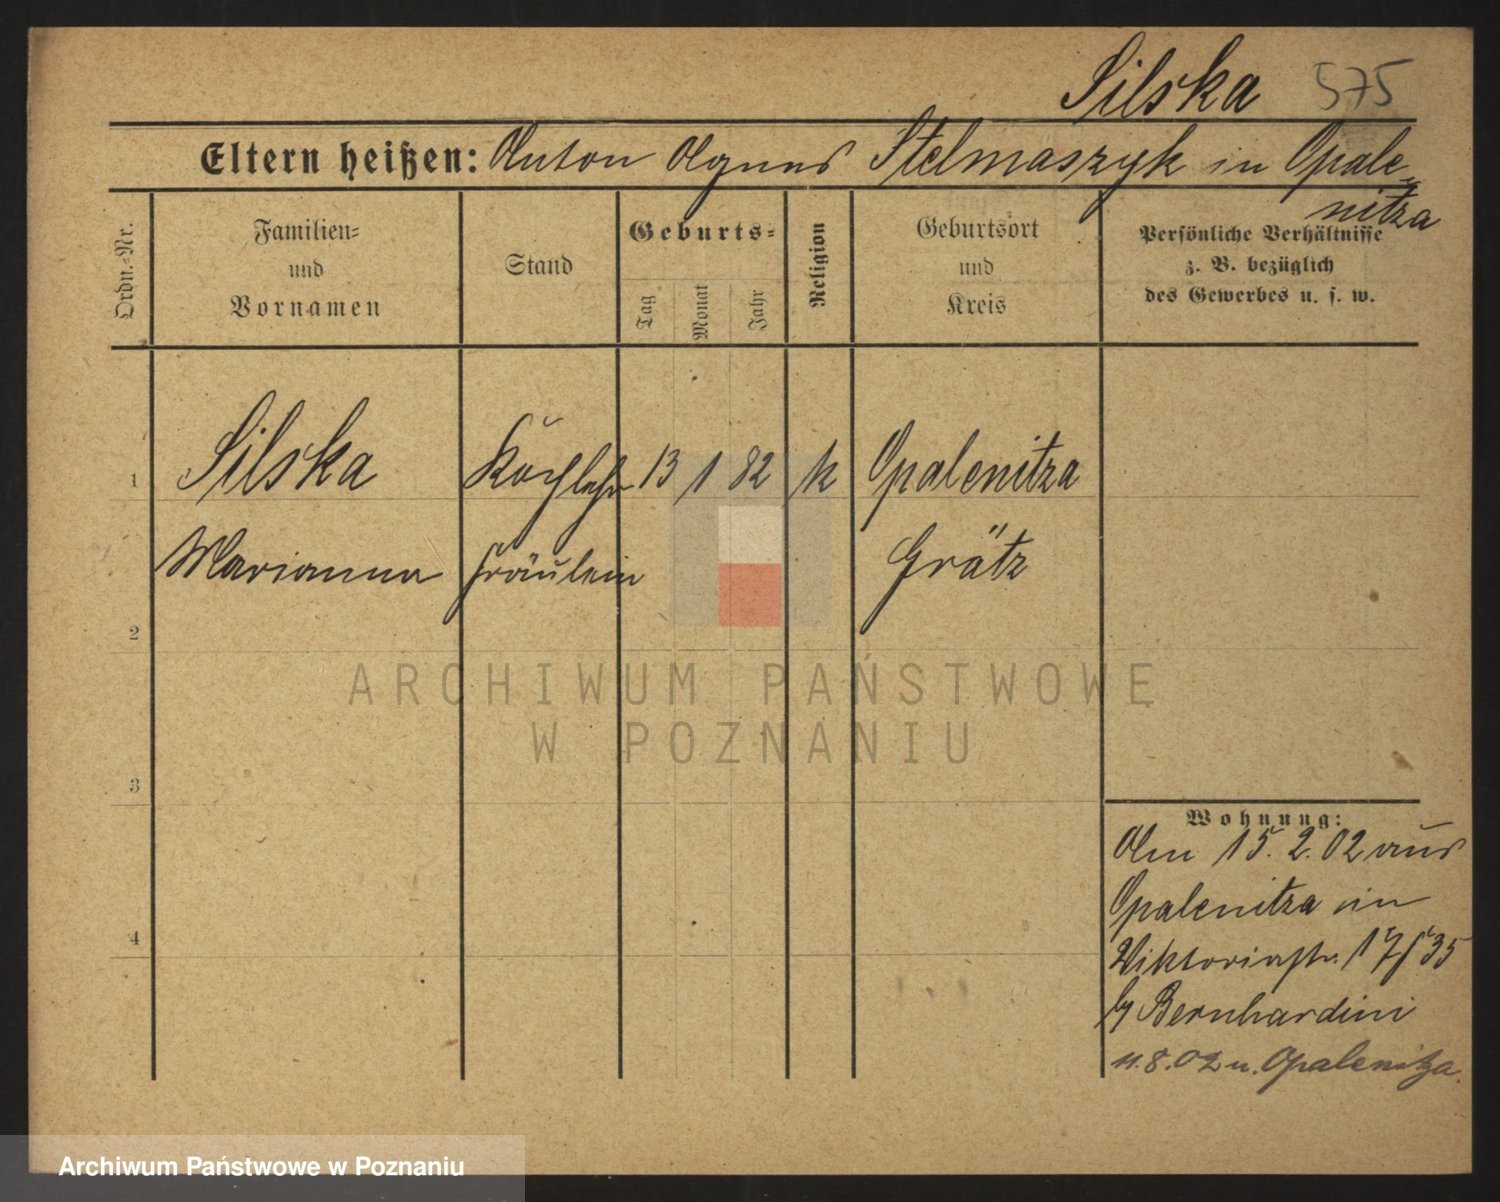 Silska 575
Eltern heißen: Anton Agnes Stelmaszyk in Opale-
nitza
Ordn.-Nr.
Familien-
und
Vornamen
Stand
Geburts-
Tag
Monat
Jahr
Religion
Geburtsort
und
Kreis
Persönliche Verhältnisse
z. B. bezüglich
des Gewerbes u. s. w.
1 Silska Kochlehr 13 1 82 k Opalenitza
Marianna fräulein Grätz
2
3
4
ARCHIWUM PAŃSTWOWE
W POZNANIU
Wohnung:
Am 15. 2. 02 aus
Opalenitza in
Viktoriastr. 17 35
b/ Bernhardini
11.8.02 n. Opalenitza.
Archiwum Państwowe w Poznaniu